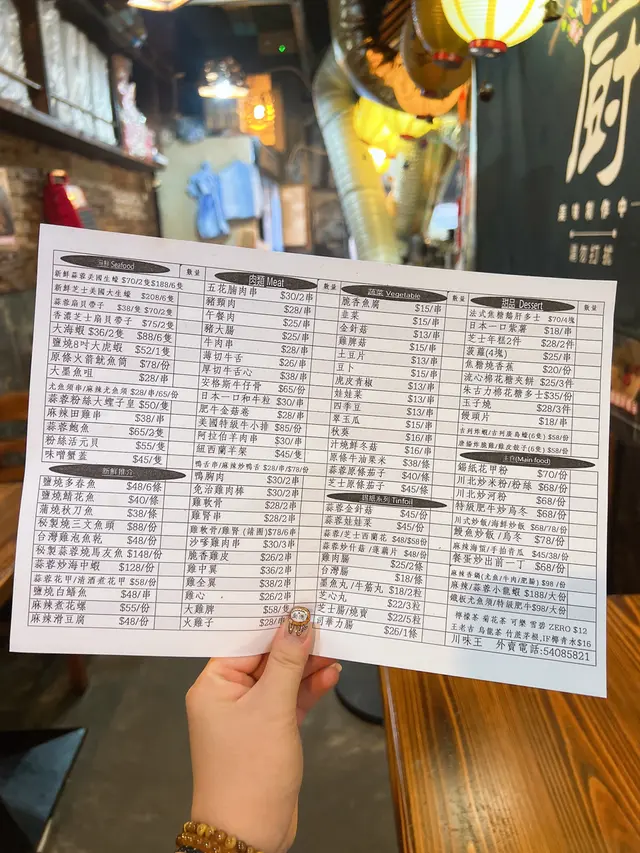 厨
海鮮 Seafood 數量
新鮮蒜蓉美國生蠔 $70/2隻 $188/6隻
新鮮芝士美國大生蠔 $208/6隻
蒜蓉扇貝帶子 $38/隻 $70/2隻
香濃芝士扇貝帶子 $75/2隻
大海蝦 $36/2隻 $88/6隻
鹽燒8吋大虎蝦 $52/1隻
原條火箭魷魚筒 $78/份
大墨魚咀 $28/串
尤魚須串/麻辣尤魚須 $28/串/65/份
蒜蓉粉絲大蟶子皇 $50/隻
麻辣田雞串 $38/串
蒜蓉鮑魚 $65/2隻
粉絲活元貝 $55/隻
味噌蟹蓋 $45/隻
新鮮推介
鹽燒多春魚 $48/6條
鹽燒鯖花魚 $40/條
蒲燒秋刀魚 $38/條
秘製燒三文魚頭 $88/份
台灣雞泡魚乾 $48/份
秘製蒜蓉燒馬友魚 $148/份
蒜蓉炒海中蝦 $128/份
蒜蓉花甲/清酒煮花甲 $58/份
鹽燒白鱔魚 $48/串
麻辣煮花螺 $55/份
麻辣滑豆腐 $48/份
肉類 Meat 數量
五花腩肉串 $30/2串
豬頸肉 $28/串
午餐肉 $25/串
豬大腸 $25/串
牛肉串 $28/串
薄切牛舌 $26/串
厚切牛舌心 $38/串
安格斯牛仔骨 $65/份
日本一口和牛粒 $30/串
肥牛金菇卷 $28/串
美國特級牛小排 $85/份
阿拉伯羊肉串 $30/串
紐西蘭羊架 $45/隻
鴨舌串/麻辣炒鴨舌 $28/串/$78/份
鴨胸肉 $30/2串
免治雞肉棒 $30/2串
雞軟骨 $28/2串
雞腎串 $28/2串
$78/6串
沙嗲雞肉串 $30/3串
脆香雞皮 $26/2串
雞中翼 $36/2串
雞全翼 $38/2串
雞心 $26/2串
大雞髀 $58/隻
火雞子 $28/串
蔬菜 Vegetable 數量
脆香魚腐 $15/串
韭菜 $15/串
金針菇 $13/串
雞脾菇 $15/串
土豆片 $13/串
豆卜 $13/串
虎皮青椒 $13/串
娃娃菜 $13/串
四季豆 $13/串
翠玉瓜 $15/串
秋葵 $16/串
汁燒鮮冬菇 $16/串
原條牛油粟米 $38/條
蒜蓉原條茄子 $40/條
芝士原條茄子 $45/條
錫紙系列 Tinfoil
蒜蓉金針菇 $45/份
蒜蓉娃娃菜 $45/份
蒜蓉/芝士西蘭花 $48/$58份
蒜蓉炒什菇/蓮藕片 $48/份
雞肉腸 $25/2條
台灣腸 $18/條
墨魚丸/牛筋丸 $18/2粒
芝心丸 $22/3粒
芝士腸/燒賣 $22/5粒
可華力腸 $26/1條
甜品 Dessert 數量
法式焦糖鵝肝多士 $70/4塊
日本一口紫薯 $18/串
芝士年糕2件 $28/2件
菠蘿(4塊) $25/串
焦糖燒香蕉 $20/份
流心棉花糖夾餅 $25/3件
朱古力棉花糖多士 $35/份
玉子燒 $28/3件
饅頭片 $18/串
$58/份
$58/份
主食(Main food)
錫紙花甲粉 $70/份
川北炒米粉/粉絲 $68/份
川北炒河粉 $68/份
特級肥牛炒烏冬 $68/份
川式炒飯/海鮮炒飯 $68/78/份
鰻魚炒飯/烏冬 $78/份
麻辣海螺/手拍青瓜 $45/38/份
餐蛋炒出前一丁 $68/份
$98/份
麻辣/蒜蓉小龍蝦 $188/大份
鐵板尤魚須/特級肥牛 $98/大份
檸檬茶 菊花茶 可樂 雪碧 ZERO $12
王老吉 烏龍茶 竹蔗茅根,IF椰青水$16
川味王 外賣電話:54085821